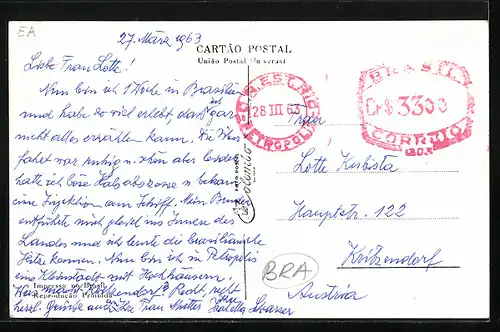 EA
27. März 1963
CARTÃO POSTAL
União Postal Universal
Liebe Frau Lotte!
Nun bin ich 1 Woche in Brasilien
und habe so viel erlebt, daß ich gar
nicht alles erzählen kann. Die Über
fahrt war ruhig u. schön aber leider
hatte ich böse Halsabszesse u. bekam
eine Injektion am Schiff. Mein Bruder
entführte mich gleich ins Innere des
Landes und ich lernte die brasilianische
Hitze kennen. Nun bin ich in Petropolis
eine Kleinstadt mit Hochhäusern.
Was macht Kritzendorf? Recht, recht
herzl. Grüsse auch Ihre Frau Mutter Ihre
Impresso no Brasil
Reprodução Proibida
D. R. EST. RIO
28 III 63
PETROPOLIS
BRASIL
Cr$ 3300
CORREIO
Colombo
Frau
Lotte Kubista
Hauptstr. 122
Kritzendorf
Austria
BRA